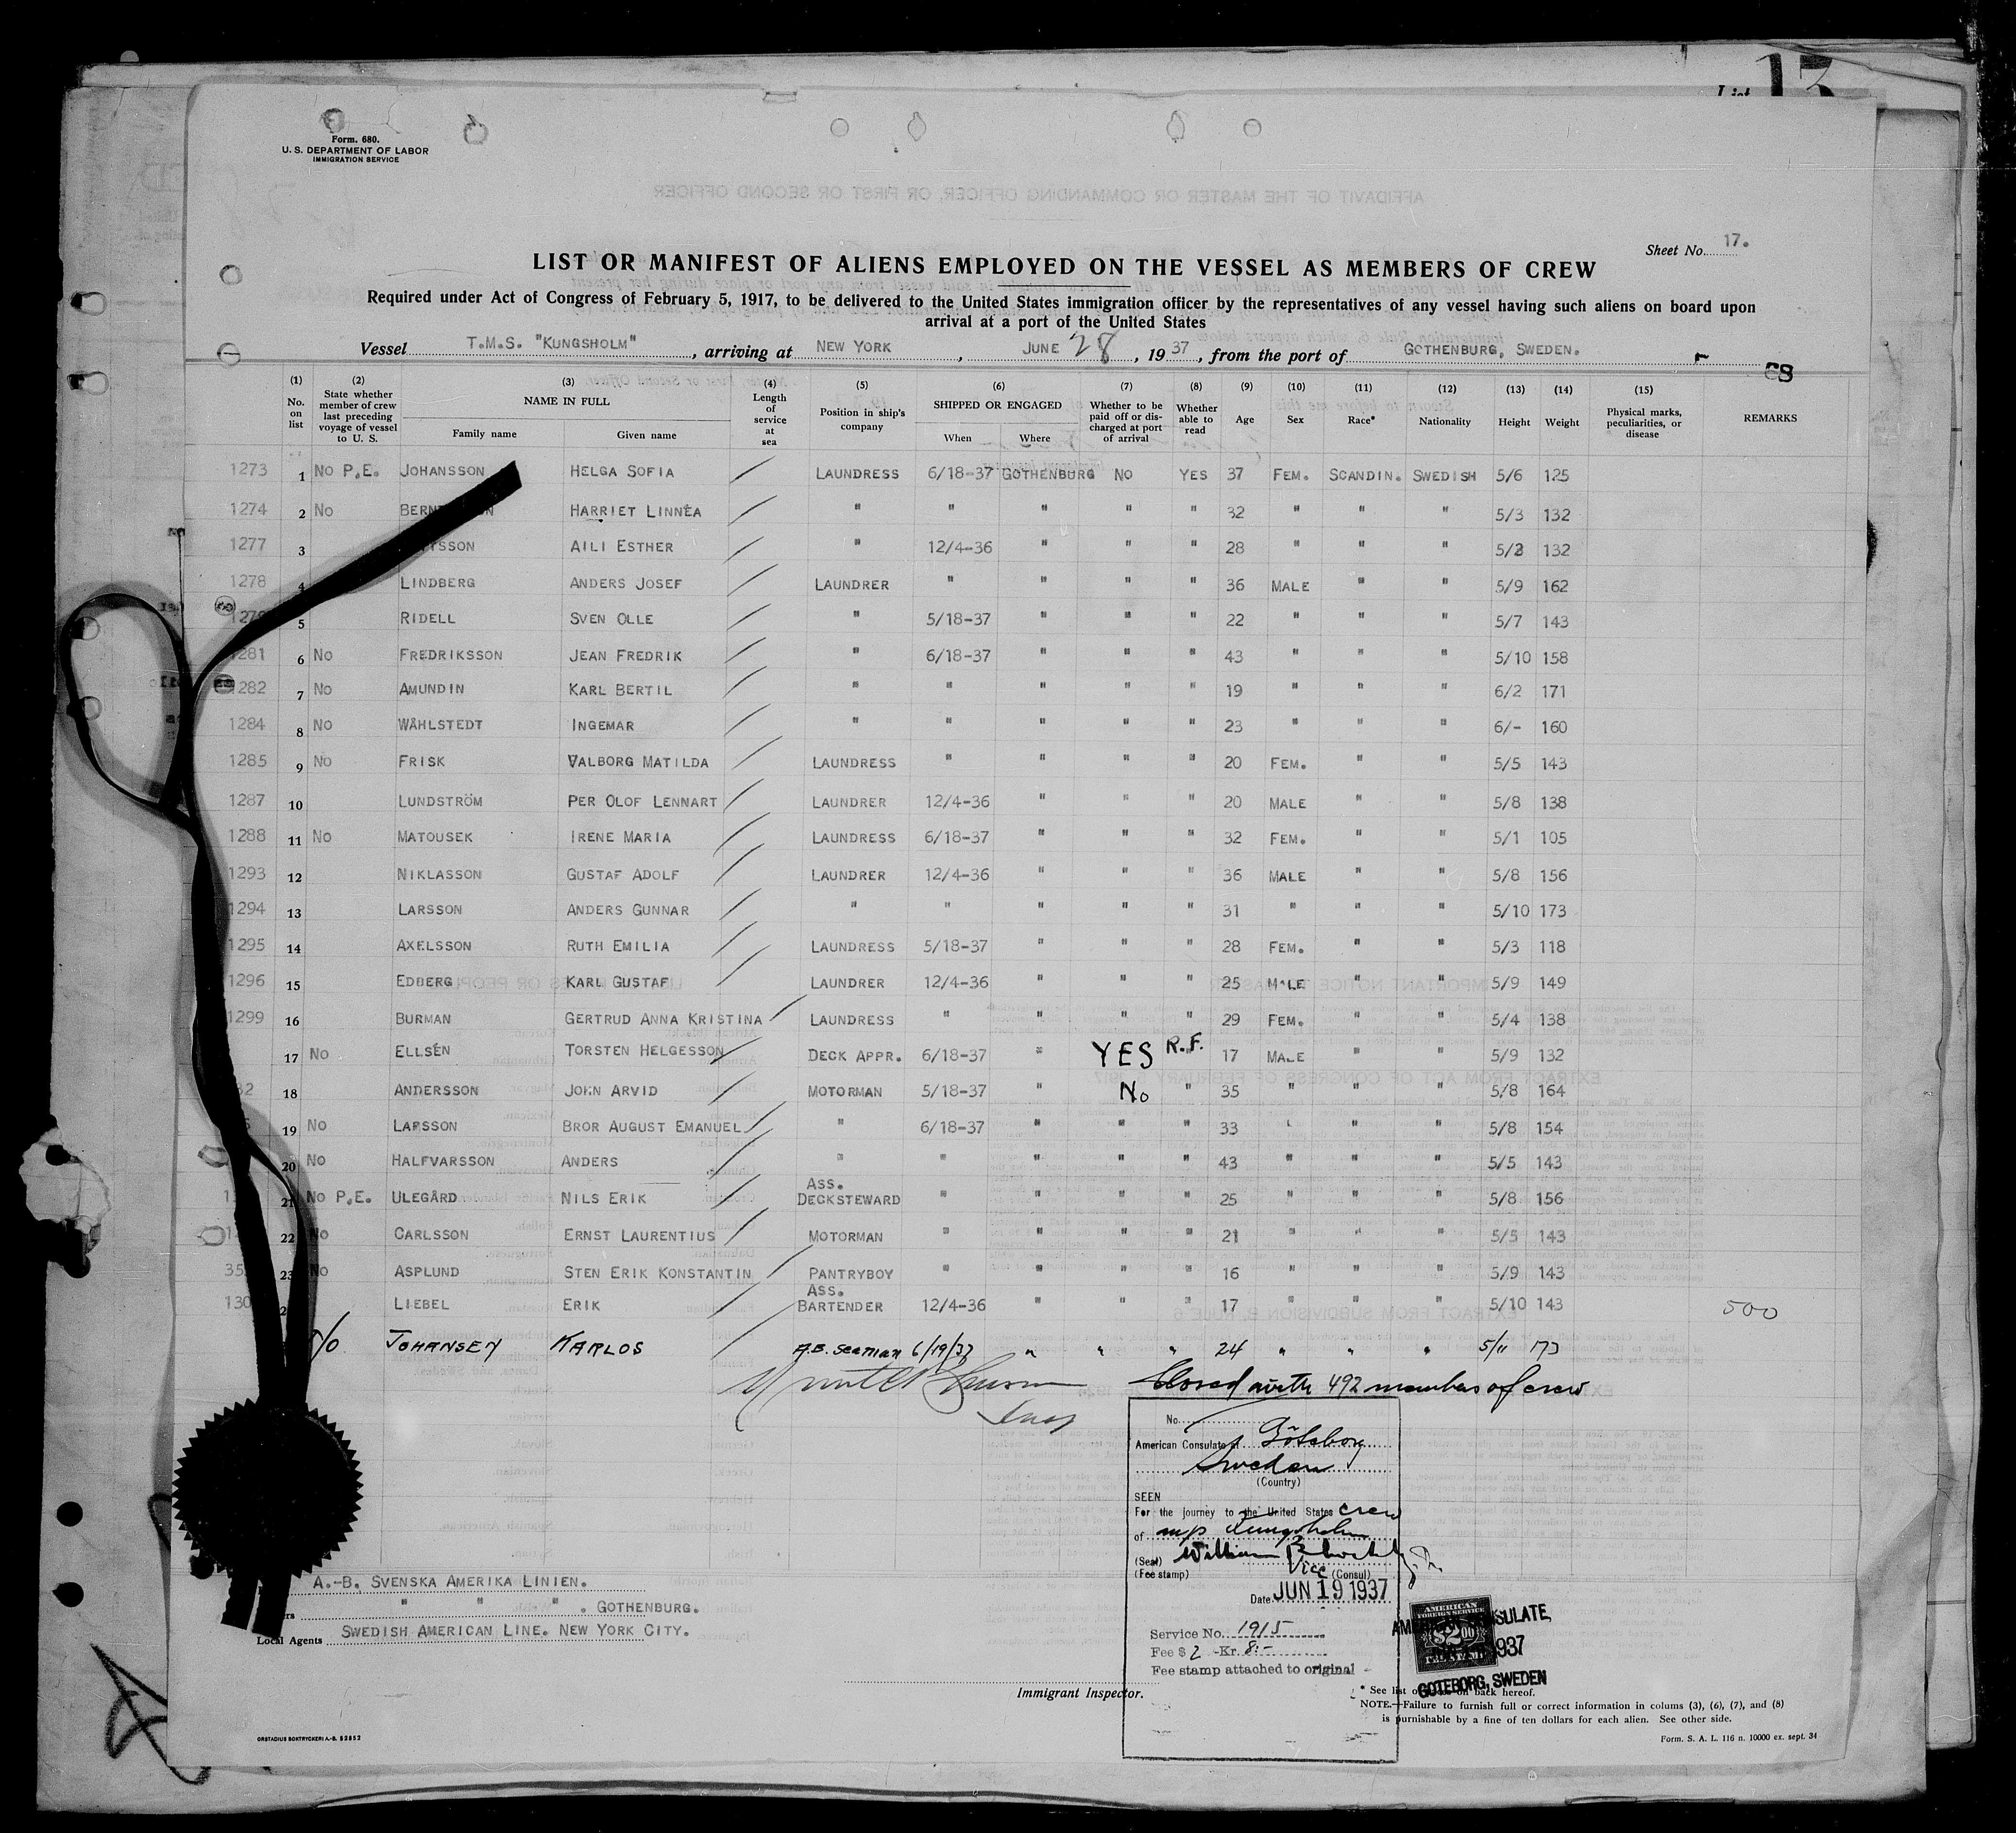 List 13
Form. 680.
U. S. DEPARTMENT OF LABOR
IMMIGRATION SERVICE
Sheet No. 17.
LIST OR MANIFEST OF ALIENS EMPLOYED ON THE VESSEL AS MEMBERS OF CREW
Required under Act of Congress of February 5, 1917, to be delivered to the United States immigration officer by the representatives of any vessel having such aliens on board upon
arrival at a port of the United States
Vessel T.M.S. "KUNGSHOLM", arriving at NEW YORK, JUNE 28, 1937, from the port of GOTHENBURG, SWEDEN.
(1) No. on list (2) State whether member of crew last preceding voyage of vessel to U. S. (3) NAME IN FULL Family name Given name (4) Length of service at sea (5) Position in ship's company (6) SHIPPED OR ENGAGED When Where (7) Whether to be paid off or discharged at port of arrival (8) Whether able to read (9) Age (10) Sex (11) Race* (12) Nationality (13) Height (14) Weight (15) Physical marks, peculiarities, or disease REMARKS
1273 1 NO P.E. JOHANSSON HELGA SOFIA / LAUNDRESS 6/18-37 GOTHENBURG NO YES 37 FEM. SCANDIN. SWEDISH 5/6 125
1274 2 NO HARRIET LINNÉA / " " " " " 32 " " " 5/3 132
1277 3 AILI ESTHER / " 12/4-36 " " " 28 " " " 5/2 132
1278 4 LINDBERG ANDERS JOSEF / LAUNDRER " " " " 36 MALE " " 5/9 162
5 RIDELL SVEN OLLE / " 5/18-37 " " " 22 " " " 5/7 143
1281 6 NO FREDRIKSSON JEAN FREDRIK / " 6/18-37 " " " 43 " " " 5/10 158
1282 7 NO AMUNDIN KARL BERTIL / " " " " " 19 " " " 6/2 171
1284 8 NO WÅHLSTEDT INGEMAR / " " " " " 23 " " " 6/- 160
1285 9 NO FRISK VALBORG MATILDA / LAUNDRESS " " " " 20 FEM. " " 5/5 143
1287 10 LUNDSTRÖM PER OLOF LENNART / LAUNDRER 12/4-36 " " " 20 MALE " " 5/8 138
1288 11 NO MATOUSEK IRENE MARIA / LAUNDRESS 6/18-37 " " " 32 FEM. " " 5/1 105
1293 12 NIKLASSON GUSTAF ADOLF / LAUNDRER 12/4-36 " " " 36 MALE " " 5/8 156
1294 13 LARSSON ANDERS GUNNAR / " " " " " 31 " " " 5/10 173
1295 14 AXELSSON RUTH EMILIA / LAUNDRESS 5/18-37 " " " 28 FEM. " " 5/3 118
1296 15 EDBERG KARL GUSTAF / LAUNDRER 12/4-36 " " " 25 MALE " " 5/9 149
1299 16 BURMAN GERTRUD ANNA KRISTINA / LAUNDRESS " " " " 29 FEM. " " 5/4 138
17 NO ELLSÉN TORSTEN HELGESSON / DECK APPR. 6/18-37 " YES R.F. " 17 MALE " " 5/9 132
18 ANDERSSON JOHN ARVID / MOTORMAN 5/18-37 " No " 35 " " " 5/8 164
19 NO LARSSON BROR AUGUST EMANUEL / " 6/18-37 " " " 33 " " " 5/8 154
20 NO HALFVARSSON ANDERS / " " " " " 43 " " " 5/5 143
21 NO P.E. ULEGÅRD NILS ERIK / ASS. DECKSTEWARD " " " " 25 " " " 5/8 156
22 NO CARLSSON ERNST LAURENTIUS / MOTORMAN " " " " 21 " " " 5/5 143
23 NO ASPLUND STEN ERIK KONSTANTIN / PANTRYBOY " " " " 16 " " " 5/9 143
LIEBEL ERIK / ASS. BARTENDER 12/4-36 " " " 17 " " " 5/10 143 500
No JOHANSEN KARLOS / A.B. seaman 6/19/37 " " " 24 " " " 5/11 173
Closed with 492 members of crew
No.
American Consulate at Göteborg
Sweden
(Country)
SEEN
For the journey to the United States crew
of m/s Kungsholm
(Seal) William
(Fee stamp) Vice (Consul)
Date JUN 19 1937
Service No. 1915
Fee $ 2 -Kr. 8:-
Fee stamp attached to original
AMERICAN
FOREIGN SERVICE
$2.00
FEE STAMP
AMERICAN CONSULATE,
1937
GOTEBORG, SWEDEN
A.-B. SVENSKA AMERIKA LINIEN.
" " " . GOTHENBURG.
Local Agents SWEDISH AMERICAN LINE. NEW YORK CITY.
Immigrant Inspector.
* See list of on back hereof.
NOTE.—Failure to furnish full or correct information in colums (3), (6), (7), and (8)
is purnishable by a fine of ten dollars for each alien. See other side.
ORSTADIUS BOKTRYCKERI A.-B. 52852
Form. S. A. L. 116 n. 10000 ex. sept. 34